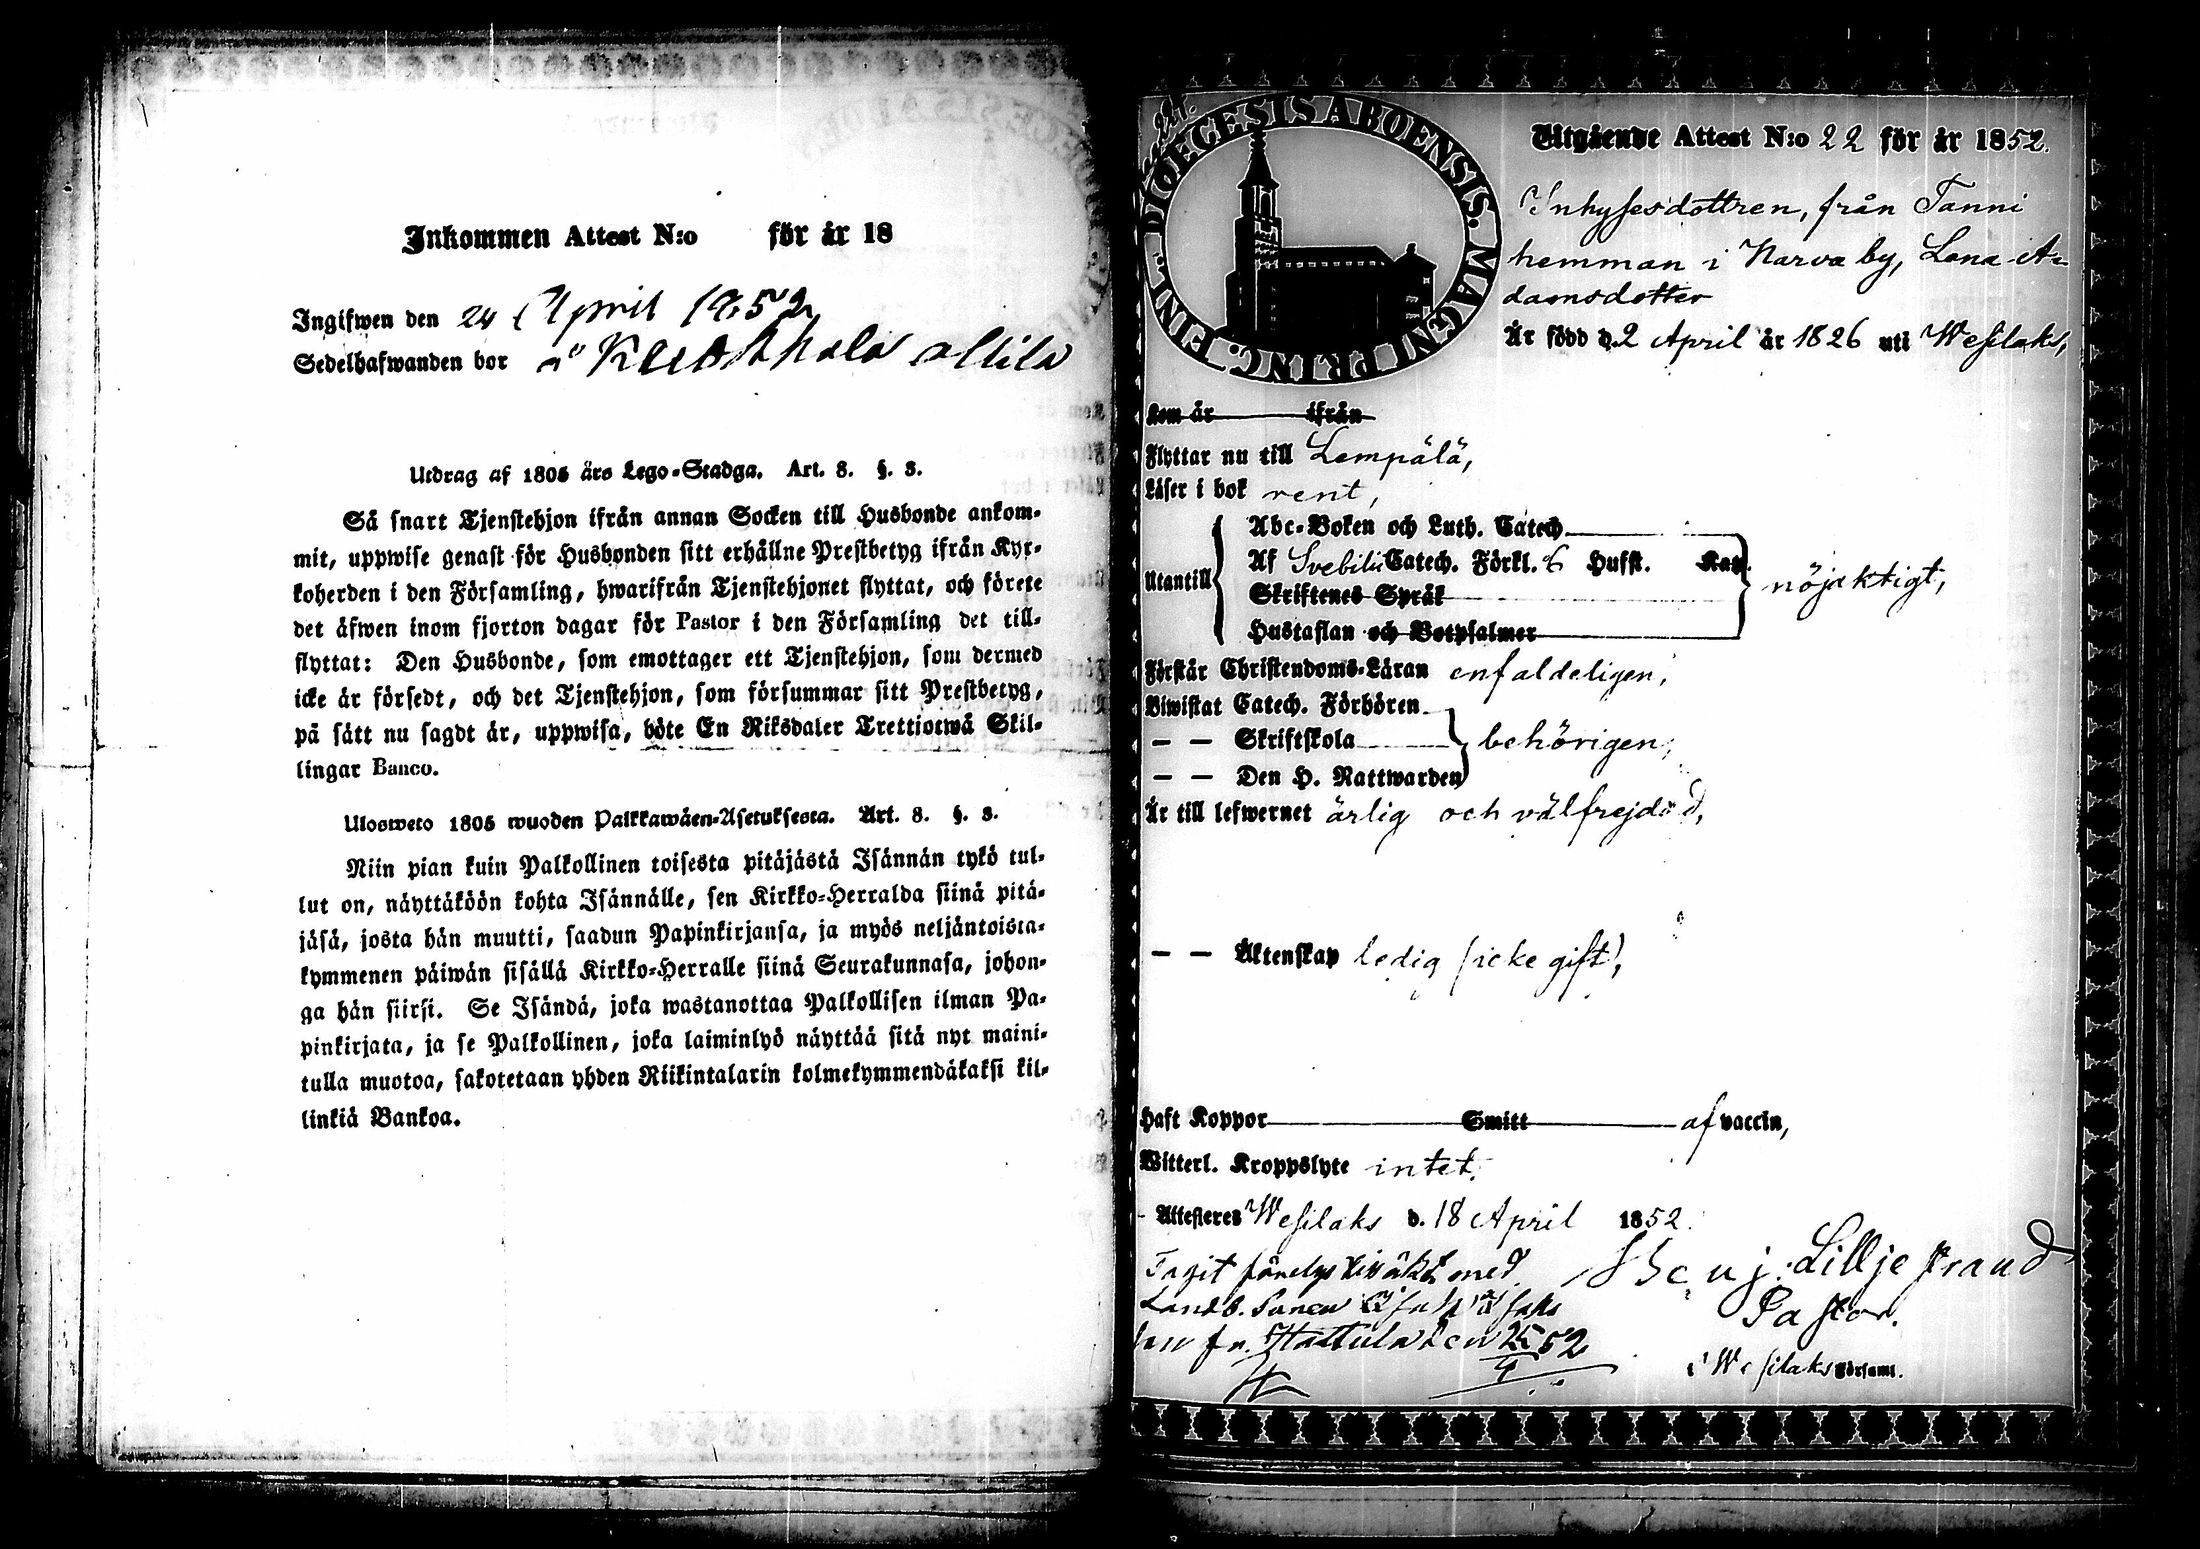 Inkommen Attest N:o för år 18
Ingifwen den 24 April 1852
Sedelhafwanden bor på
Utdrag af 1805 års Lego-Stadga. Art. 8. §. 3.
Så snart Tjenstehjon ifrån annan Socken till Husbonde ankom-
mit, uppwise genast för Husbonden sitt erhållne Prestbetyg ifrån Kyr-
koherden i den Församling, hwarifrån Tjenstehjonet flyttat, och förete
det äfwen inom fjorton dagar för Pastor i den Församling det till-
flyttat: Den Husbonde, som emottager ett Tjenstehjon, som dermed
icke är försedt, och det Tjenstehjon, som försummar sitt Prestbetyg,
på sätt nu sagdt är, uppwisa, böte En Riksdaler Trettiotwå Skil-
lingar Banco.
Ulosweto 1805 wuoden Palkkawäen-Asetuksesta. Art. 8. §. 3.
Niin pian kuin Palkollinen toisesta pitäjästä Isännän tykö tul-
lut on, näyttäköön kohta Isännälle, sen Kirkko-Herralda siinä pitä-
jäsä, josta hän muutti, saadun Papinkirjansa, ja myös neljäntoista-
kymmenen päiwän sisällä Kirkko-Herralle siinä Seurakunnasa, johon-
ga hän siirsi. Se Isändä, joka wastanottaa Palkollisen ilman Pa-
pinkirjata, ja se Palkollinen, joka laiminlyö näyttää sitä nyt maini-
tulla muotoa, sakotetaan yhden Riikintalarin kolmekymmendäkaksi kil-
linkiä Bankoa.
DIOECESIS ABOENSIS. MAGNI PRINC. FINL.
Utgående Attest N:o 22 för år 1852.
Inhysesdottren, från Tanni
hemman i Narva by, Lena A-
damsdotter
Är född d. 2 April år 1826 uti Wesilaks,
Kom år ifrån
Flyttar nu till Lempälä,
Läser i bok rent,
Utantill
Abc-Boken och Luth. Catech.
Af Svebilii Catech. Förkl. 6 Hufst. Kap.
Skriftenes Språk
Hustaflan och Botpsalmer
nöjaktigt,
Förstår Christendoms-Läran enfaldeligen,
Biwistat Catech. Förhören
— — Skriftskola
— — Den H. Nattwarden
behörigen,
Är till lefwernet ärlig och välfrejdad,
— — Äktenskap ledig (icke gift),
Haft Koppor Smitt af vaccin,
Witterl. Kroppslyte intet.
Attesteres Wesilaks d. 18 April 1852.
Benj. Lilljestrand
Pastor.
i Wesilaks Församl.
Tagit med
Landb. Sonen
fr. Hattula den 25/4 52